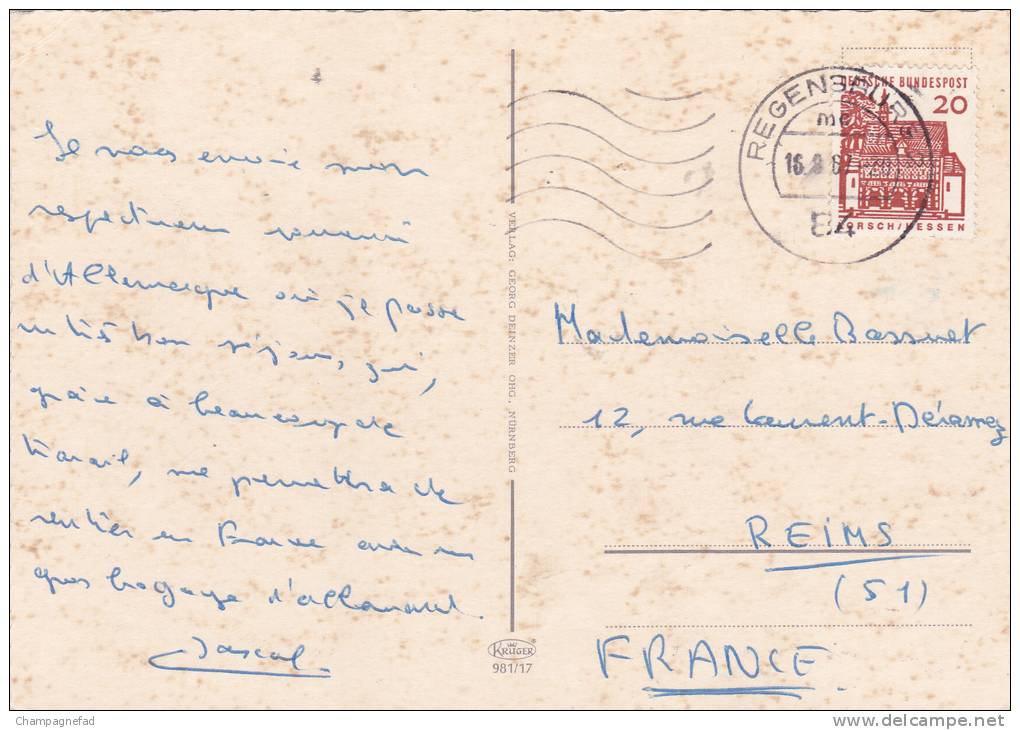 Je vous envoie mon
respectueux souvenir
d'Allemagne où je passe
un très bon séjour, qui,
grâce à beaucoup de
travail, me permettra de
rentrer en France avec un
gros bagage d'allemand.
Pascal
VERLAG: GEORG DEINZER OHG., NÜRNBERG
KRÜGER
981/17
REGENSBUR
16.8.6
84
DEUTSCHE BUNDESPOST
20
LORSCH/HESSEN
Mademoiselle Bassuet
12, rue Laurent-Déramez
REIMS
(51)
FRANCE.
Champagnefad
www.delcampe.net